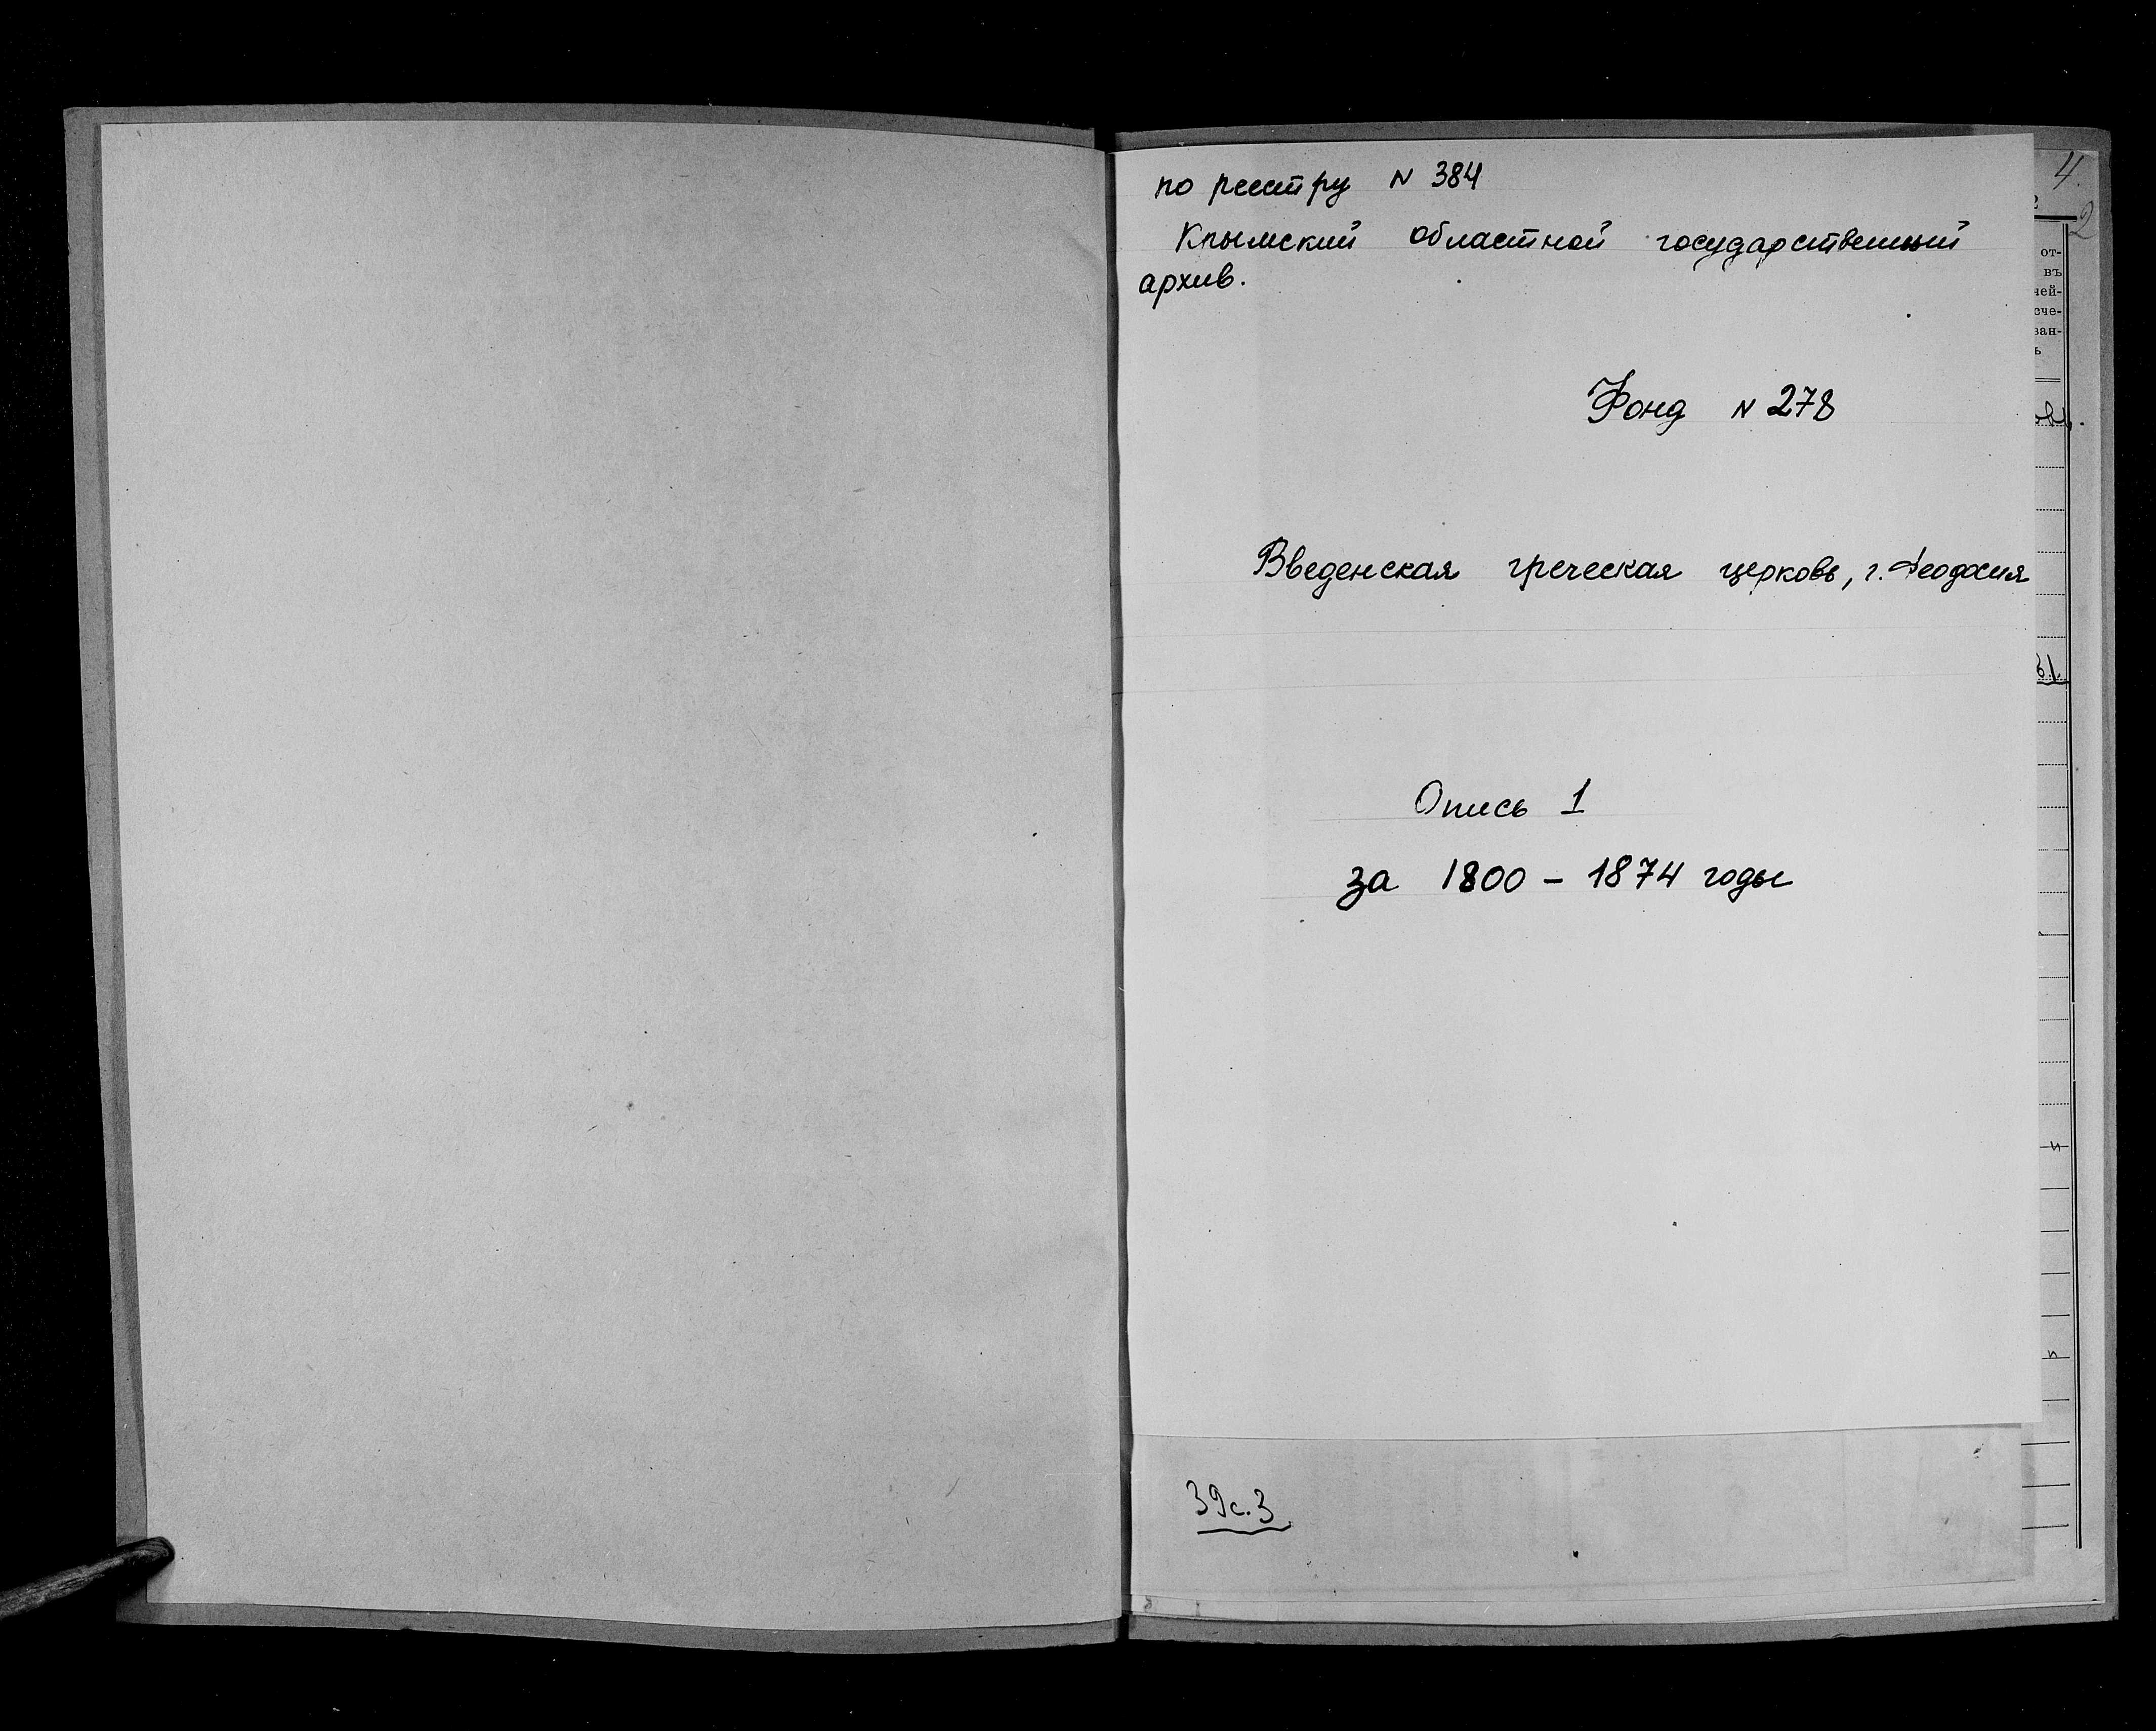 по реестру N 384
Крымский областной государственный
архив.
Фонд N 278
Введенская греческая церковь, г. Феодосия
Опись 1
за 1800 – 1874 годы
39с.3
4.
2
от-
въ
ней-
сче-
ван-
ь